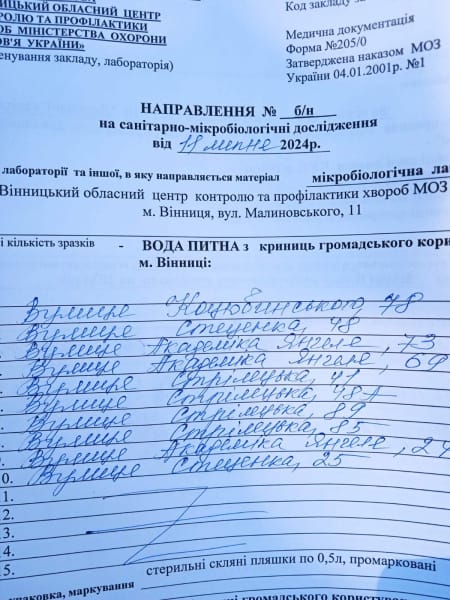 ИЦЬКИЙ ОБЛАСНИЙ ЦЕНТР
РОЛЮ ТА ПРОФІЛАКТИКИ
ОБ МІНІСТЕРСТВА ОХОРОНИ
ОВ'Я УКРАЇНИ»
енування закладу, лабораторія)
Код закладу за
Медична документація
Форма №205/0
Затверджена наказом МОЗ
України 04.01.2001р. №1
НАПРАВЛЕННЯ № б/н
на санітарно-мікробіологічні дослідження
від 11 липне 2024р.
лабораторії та іншої, в яку направляється матеріал мікробіологічна ла
Вінницький обласний центр контролю та профілактики хвороб МОЗ
м. Вінниця, вул. Малиновського, 11
і кількість зразків - ВОДА ПИТНА з криниць громадського кори
м. Вінниці:
Вулице Коцюбинського 78
Вулице Стеценка, 48
Вулице Академіка Янгеле, 73
Вулице Академіка Янгеле, 69
Вулице Стрілецька, 41
Вулице Стрілецька, 48А
Вулице Стрілецька, 89
Вулице Стрілецька, 85
Вулице Академіка Янгеле, 24
0. Вулице Стеценка, 25
11.
12.
13.
14.
15.
стерильні скляні пляшки по 0,5л, промарковані
упаковка, маркування
громадського користу